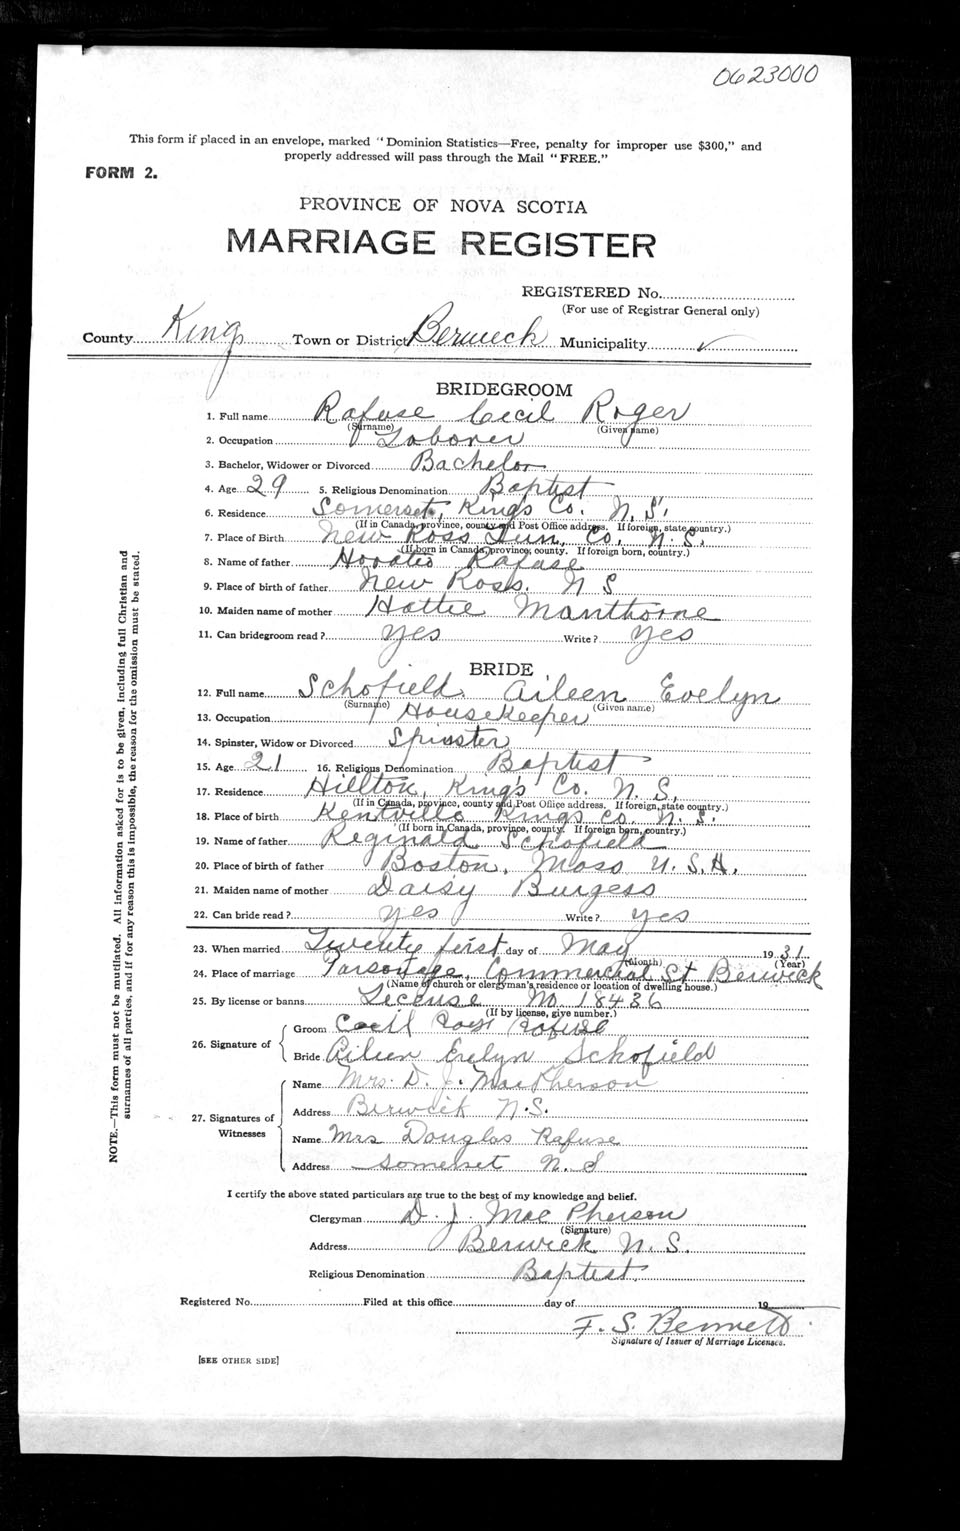 0623000
This form if placed in an envelope, marked "Dominion Statistics—Free, penalty for improper use $300," and
properly addressed will pass through the Mail "FREE."
FORM 2.
PROVINCE OF NOVA SCOTIA
MARRIAGE REGISTER
REGISTERED No.
(For use of Registrar General only)
County Kings Town or District Berwick Municipality ✓
BRIDEGROOM
1. Full name Rafuse Cecil Roger
(Surname) (Given name)
2. Occupation Laborer
3. Bachelor, Widower or Divorced Bachelor
4. Age 29 5. Religious Denomination Baptist
6. Residence Somerset, Kings Co. N.S.
(If in Canada, province, county and Post Office address. If foreign, state country.)
7. Place of Birth New Ross Lun. Co. N.S.
(If born in Canada, province, county. If foreign born, country.)
8. Name of father Horatio Rafuse
9. Place of birth of father New Ross. N S
10. Maiden name of mother Hattie Manthorne
11. Can bridegroom read? yes Write? yes
BRIDE
12. Full name Schofield Aileen Evelyn
(Surname) (Given name)
13. Occupation Housekeeper
14. Spinster, Widow or Divorced Spinster
15. Age 21 16. Religious Denomination Baptist
17. Residence Hillton, King's Co. N.S.
(If in Canada, province, county and Post Office address. If foreign, state country.)
18. Place of birth Kentville Kings Co. N.S.
(If born in Canada, province, county. If foreign born, country.)
19. Name of father Reginald Schofield
20. Place of birth of father Boston, Mass U.S.A.
21. Maiden name of mother Daisy Burgess
22. Can bride read? yes Write? yes
23. When married Twenty first day of May 1931
(Month) (Year)
24. Place of marriage Parsonage, Commercial St Berwick
(Name of church or clergyman's residence or location of dwelling house.)
25. By license or banns License No. 18436
(If by license, give number.)
26. Signature of
Groom Cecil Rafuse
Bride Aileen Evelyn Schofield
27. Signatures of Witnesses
Name Mrs. D. J. MacPherson
Address Berwick N.S.
Name Mrs Douglas Rafuse
Address Somerset N.S
I certify the above stated particulars are true to the best of my knowledge and belief.
Clergyman D. J. MacPherson
(Signature)
Address Berwick N.S.
Religious Denomination Baptist
Registered No. Filed at this office day of 19
F. S. Bennett
Signature of Issuer of Marriage Licenses.
[SEE OTHER SIDE]
NOTE.—This form must not be mutilated. All information asked for is to be given, including full Christian and
surnames of all parties, and if for any reason this is impossible, the reason for the omission must be stated.